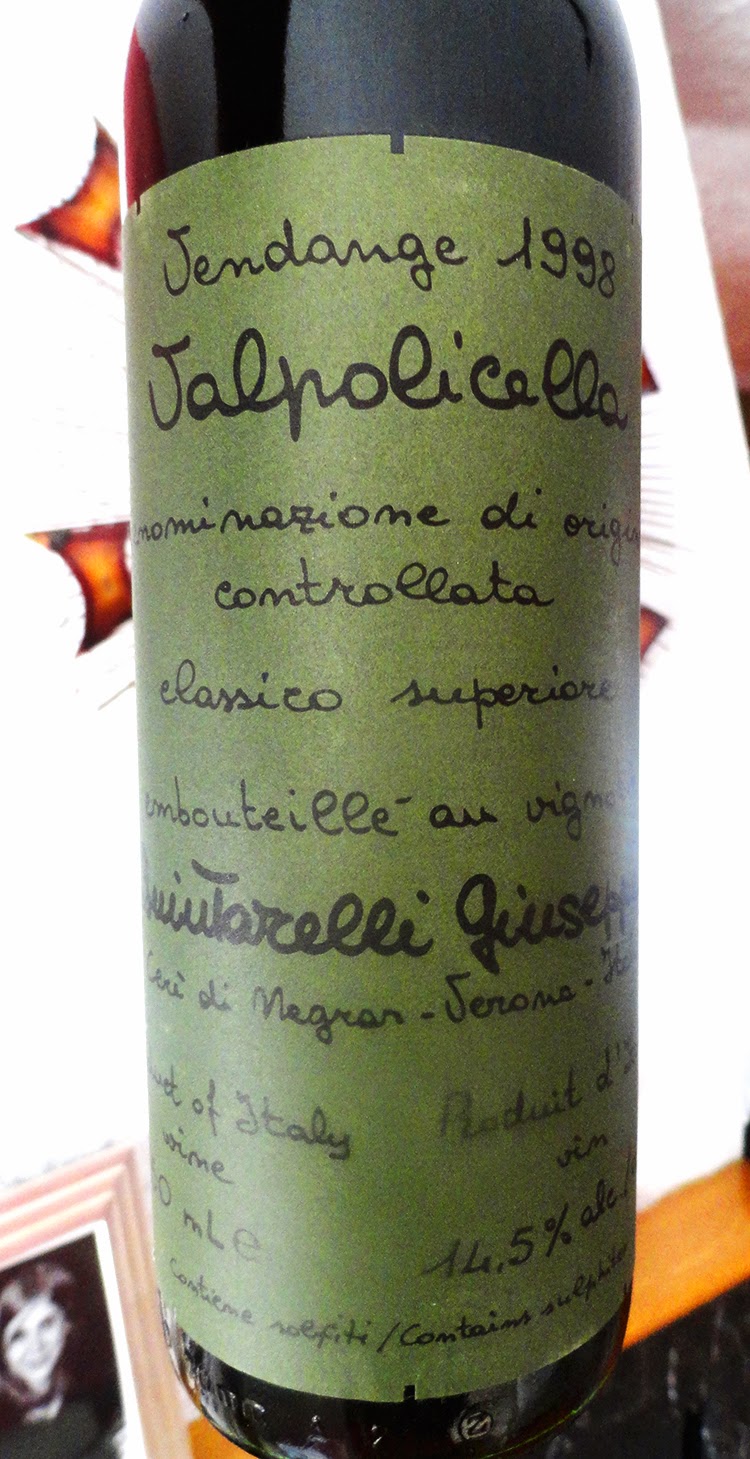 Vendange 1998
Valpolicella
nominazione di origin
controllata
classico superiore
embouteillé au vigno
Quintarelli Giuseppe
Cerè di Negrar - Verona - Ita
of Italy Produit d'I
wine vin
0 mL e 14,5% alc./
Contiene solfiti / Contains sulphites